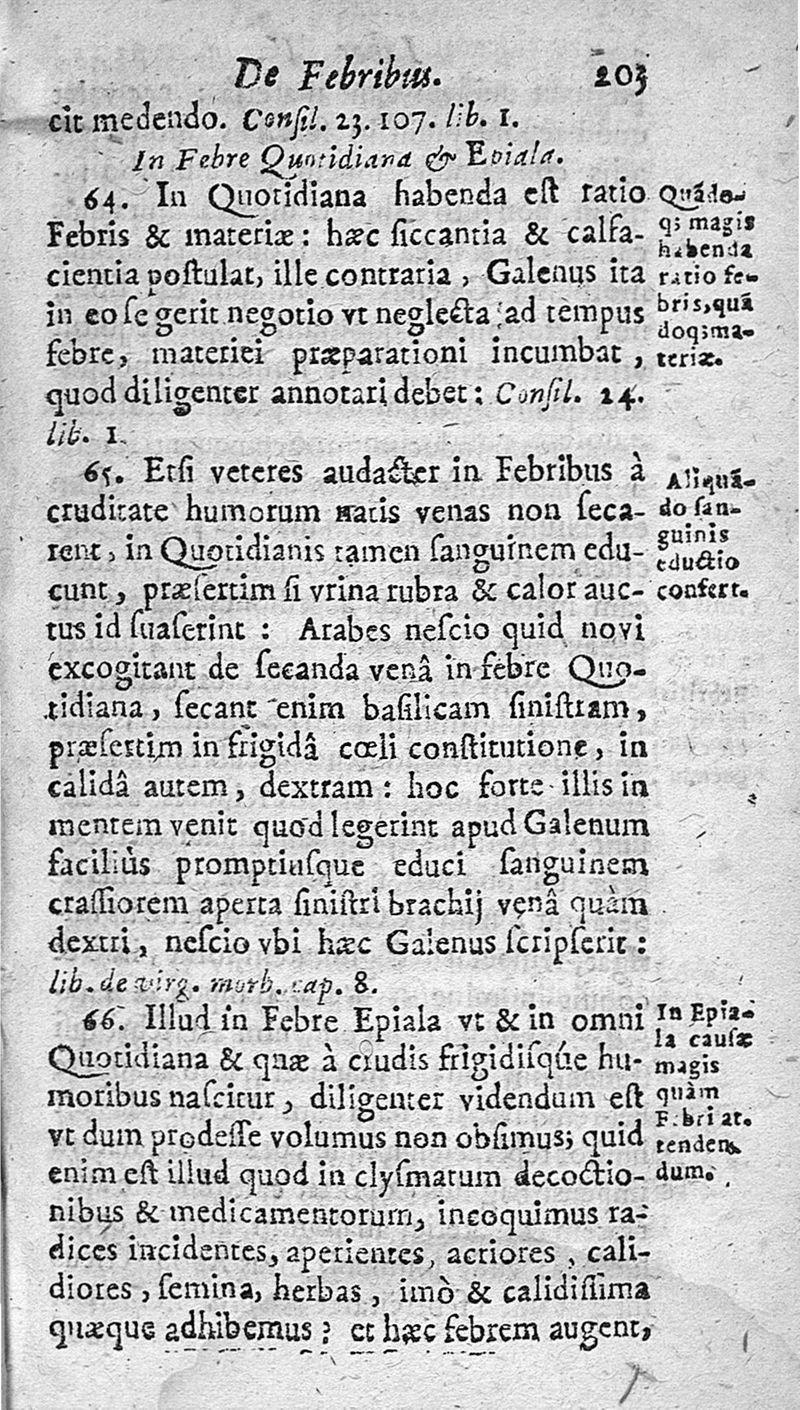 De Febribus. 203
cit medendo. Conſil. 23. 107. lib. 1.
In Febre Quotidiana & Epiala.
64. In Quotidiana habenda eſt ratio
Febris & materiæ: hæc ſiccantia & calfa-
cientia poſtulat, ille contraria, Galenus ita
in eo ſe gerit negotio vt neglecta ad tempus
febre, materiei præparationi incumbat,
quod diligenter annotari debet: Conſil. 24.
lib. 1.
Quãdo-
q; magis
habenda
ratio fe-
bris, quã
doq; ma-
teriæ.
65. Etſi veteres audacter in Febribus à
cruditate humorum natis venas non ſeca-
rent, in Quotidianis tamen ſanguinem edu-
cunt, præſertim ſi vrina rubra & calor auc-
tus id ſuaſerint: Arabes neſcio quid novi
excogitant de ſecanda venâ in febre Quo-
tidiana, ſecant enim baſilicam ſiniſtram,
præſertim in frigidâ cœli conſtitutione, in
calidâ autem, dextram: hoc forte illis in
mentem venit quod legerint apud Galenum
faciliùs promptiuſque educi ſanguinem
craſſiorem aperta ſiniſtri brachij venâ quàm
dextri, neſcio vbi hæc Galenus ſcripſerit:
lib. de virg. morb. cap. 8.
Aliquã-
do ſan-
guinis
eductio
confert.
66. Illud in Febre Epiala vt & in omni
Quotidiana & quæ à crudis frigidiſqúe hu-
moribus naſcitur, diligenter videndum eſt
vt dum prodeſſe volumus non obſimus; quid
enim eſt illud quod in clyſmatum decoctio-
nibus & medicamentorum, incoquimus ra-
dices incidentes, aperientes, acriores, cali-
diores, ſemina, herbas, imò & calidiſſima
quæque adhibemus? et hæc febrem augent,
In Epia-
la cauſæ
magis
quàm
Febri at-
tenden-
dum.